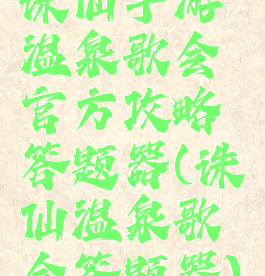 诛仙手游
温泉歌会
官方攻略
答题器(诛
仙温泉歌
会答题器)